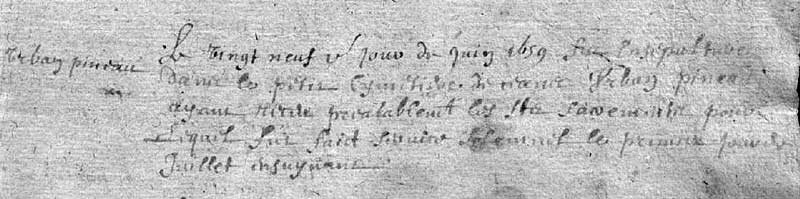 Le vingt neuf e jour de juin 1659 fut la sepulture
Urban pineau
dans le petit Cymitiere de Urban pineau
ayant receu prealablemt les Sts Sacements pour
lequel fut faict service solemnel le premier jour de
Juillet ensuyvant